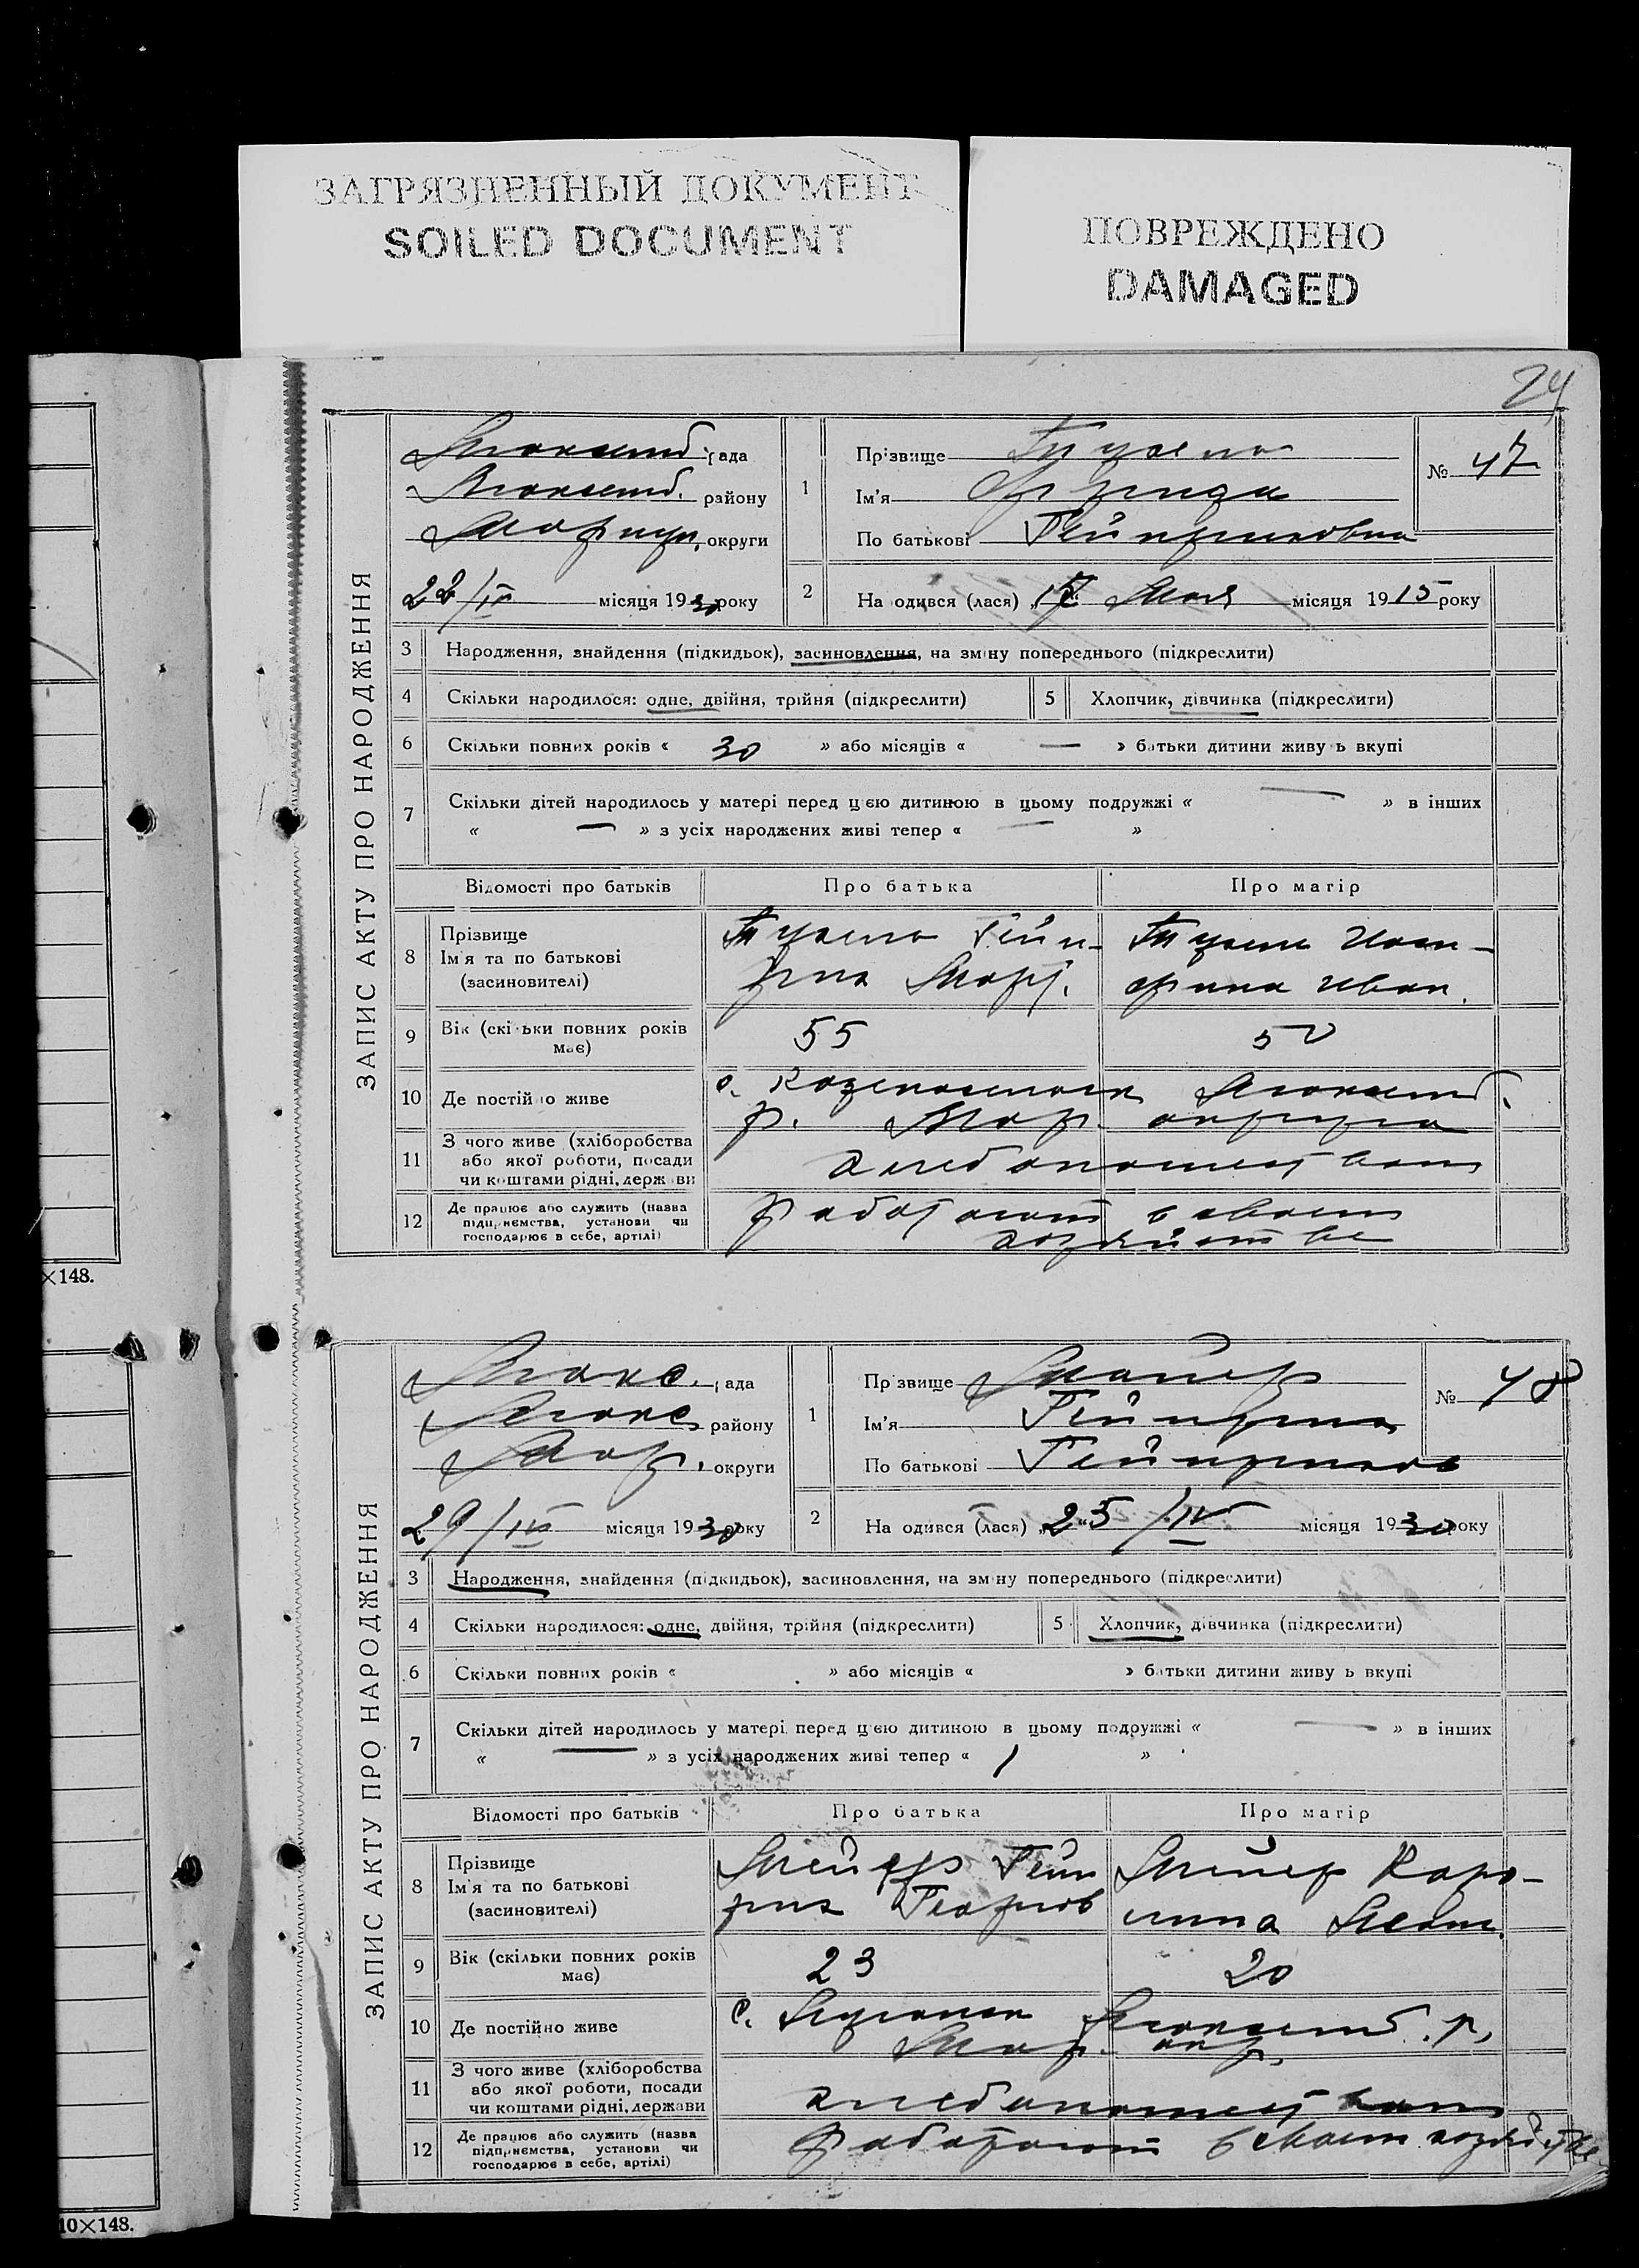 ЗАГРЯЗНЕННЫЙ ДОКУМЕНТ
SOILED DOCUMENT
ПОВРЕЖДЕНО
DAMAGED
24
ЗАПИС АКТУ ПРО НАРОДЖЕННЯ
рада
району
округи
22/IV місяця 1930 року
1
Прізвище
Ім'я Фрида
По батькові Гейнриховна
№ 47
2 Народився (лася) „17“ Мая місяця 1915 року
3 Народження, знайдення (підкидьок), засиновлення, на зміну попереднього (підкреслити)
4 Скільки народилося: одне, двійня, трійня (підкреслити) 5 Хлопчик, дівчинка (підкреслити)
6 Скільки повних років « 30 » або місяців « — » батьки дитини живуть вкупі
7 Скільки дітей народилось у матері перед цією дитиною в цьому подружжі « — » в інших
« — » з усіх народжених живі тепер « — »
Відомості про батьків Про батька Про матір
8 Прізвище
Ім'я та по батькові
(засиновителі)
Гейн-
рих
Иван.
9 Вік (скільки повних років має) 55 50
10 Де постійно живе
с.
р. Мар. округа
11 З чого живе (хліборобства
або якої роботи, посади
чи коштами рідні, держави
хлебопашеством
12 Де працює або служить (назва
підприємства, установи чи
господарює в себе, артілі)
работают в своем
хозяйстве
×148.
ЗАПИС АКТУ ПРО НАРОДЖЕННЯ
рада
району
Мар. округи
29/IV місяця 1930 року
1
Прізвище Майер
Ім'я Гейнрих
По батькові Гейнрихов
№ 48
2 Народився (лася) „25“/IV місяця 1930 року
3 Народження, знайдення (підкидьок), засиновлення, на зміну попереднього (підкреслити)
4 Скільки народилося: одне, двійня, трійня (підкреслити) 5 Хлопчик, дівчинка (підкреслити)
6 Скільки повних років « » або місяців « » батьки дитини живуть вкупі
7 Скільки дітей народилось у матері перед цією дитиною в цьому подружжі « — » в інших
« — » з усіх народжених живі тепер « 1 »
Відомості про батьків Про батька Про матір
8 Прізвище
Ім'я та по батькові
(засиновителі)
Мейер Гейн
рих Георгов
Мейер Каро-
лина
9 Вік (скільки повних років має) 23 20
10 Де постійно живе
с. р.
Мар. окр.
11 З чого живе (хліборобства
або якої роботи, посади
чи коштами рідні, держави
хлебопашеством
12 Де працює або служить (назва
підприємства, установи чи
господарює в себе, артілі)
работают в своем хозяйстве
10×148.